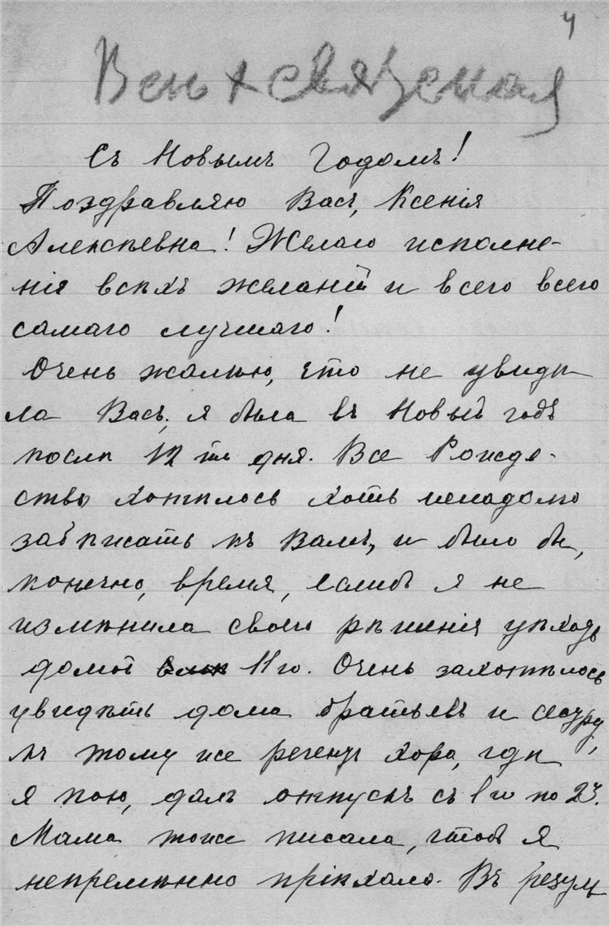 4
Съ Новымъ Годомъ!
Поздравляю Васъ, Ксенія
Алексѣевна! Желаю исполне-
нія всѣхъ желаній и всего всего
самаго лучшаго!
Очень жалѣю, что не увидѣ
ла Васъ, я была въ Новый годъ
послѣ 12 ти дня. Все Рожде-
ство хотѣлось хоть ненадолго
забѣжать къ Вамъ, и было бы,
конечно, время, еслибъ я не
измѣнила своего рѣшенія уѣхать
домой 11го. Очень захотѣлось
увидѣть дома братьевъ и сестру,
къ тому же регентъ хора, гдѣ
я пою, далъ отпускъ съ 1го по 23.
Мама тоже писала, чтобъ я
непремѣнно пріѣхала. Въ резуль